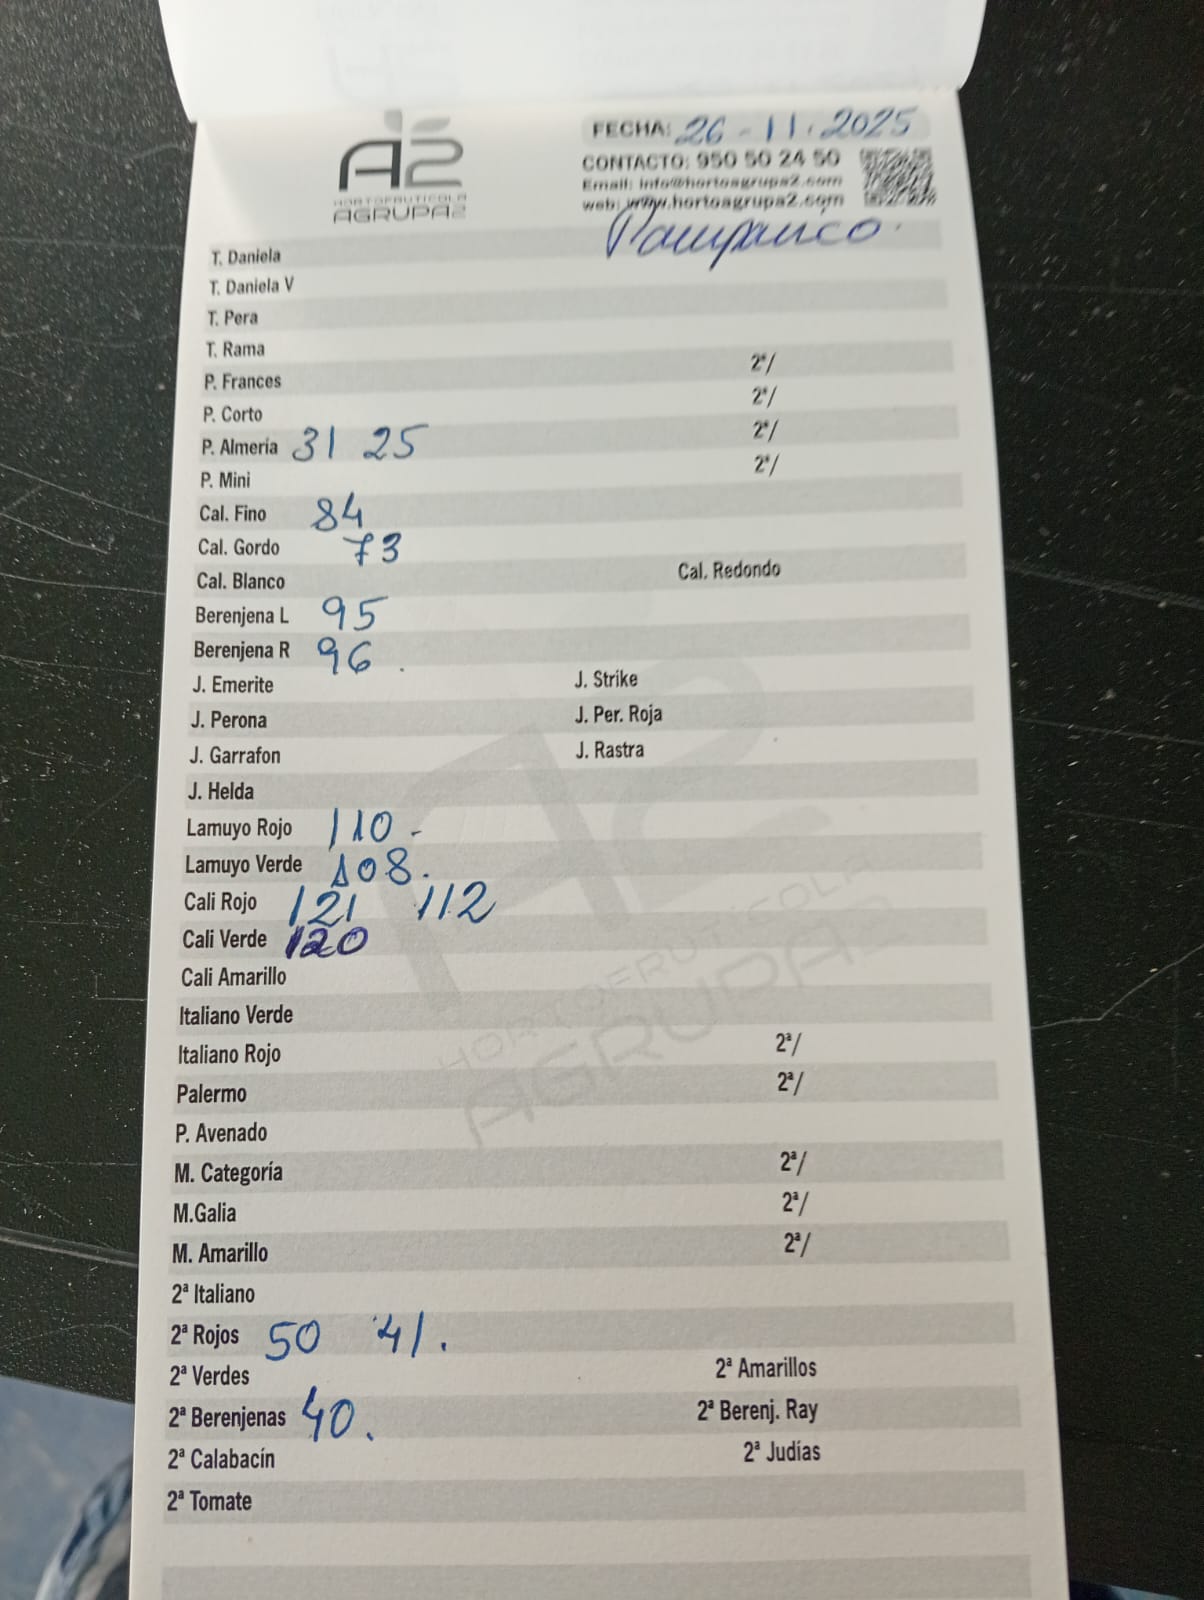 A2
HORTOFRUTICOLA
AGRUPA2
FECHA: 26-11-2025
CONTACTO: 950 50 24 50
Email: info@hortoagrupa2.com
web: www.hortoagrupa2.com
Pampanico.
T. Daniela
T. Daniela V
T. Pera
T. Rama
P. Frances 2ª/
P. Corto 2ª/
P. Almería 31 25 2ª/
P. Mini 2ª/
Cal. Fino 84
Cal. Gordo 73
Cal. Blanco Cal. Redondo
Berenjena L 95
Berenjena R 96.
J. Emerite J. Strike
J. Perona J. Per. Roja
J. Garrafon J. Rastra
J. Helda
Lamuyo Rojo 110-
Lamuyo Verde 108.
Cali Rojo 121 112
Cali Verde 120
Cali Amarillo
Italiano Verde
Italiano Rojo 2ª/
Palermo 2ª/
P. Avenado
M. Categoría 2ª/
M.Galia 2ª/
M. Amarillo 2ª/
2ª Italiano
2ª Rojos 50 41.
2ª Verdes 2ª Amarillos
2ª Berenjenas 40. 2ª Berenj. Ray
2ª Calabacín 2ª Judías
2ª Tomate
A2
HORTOFRUTICOLA
AGRUPA2